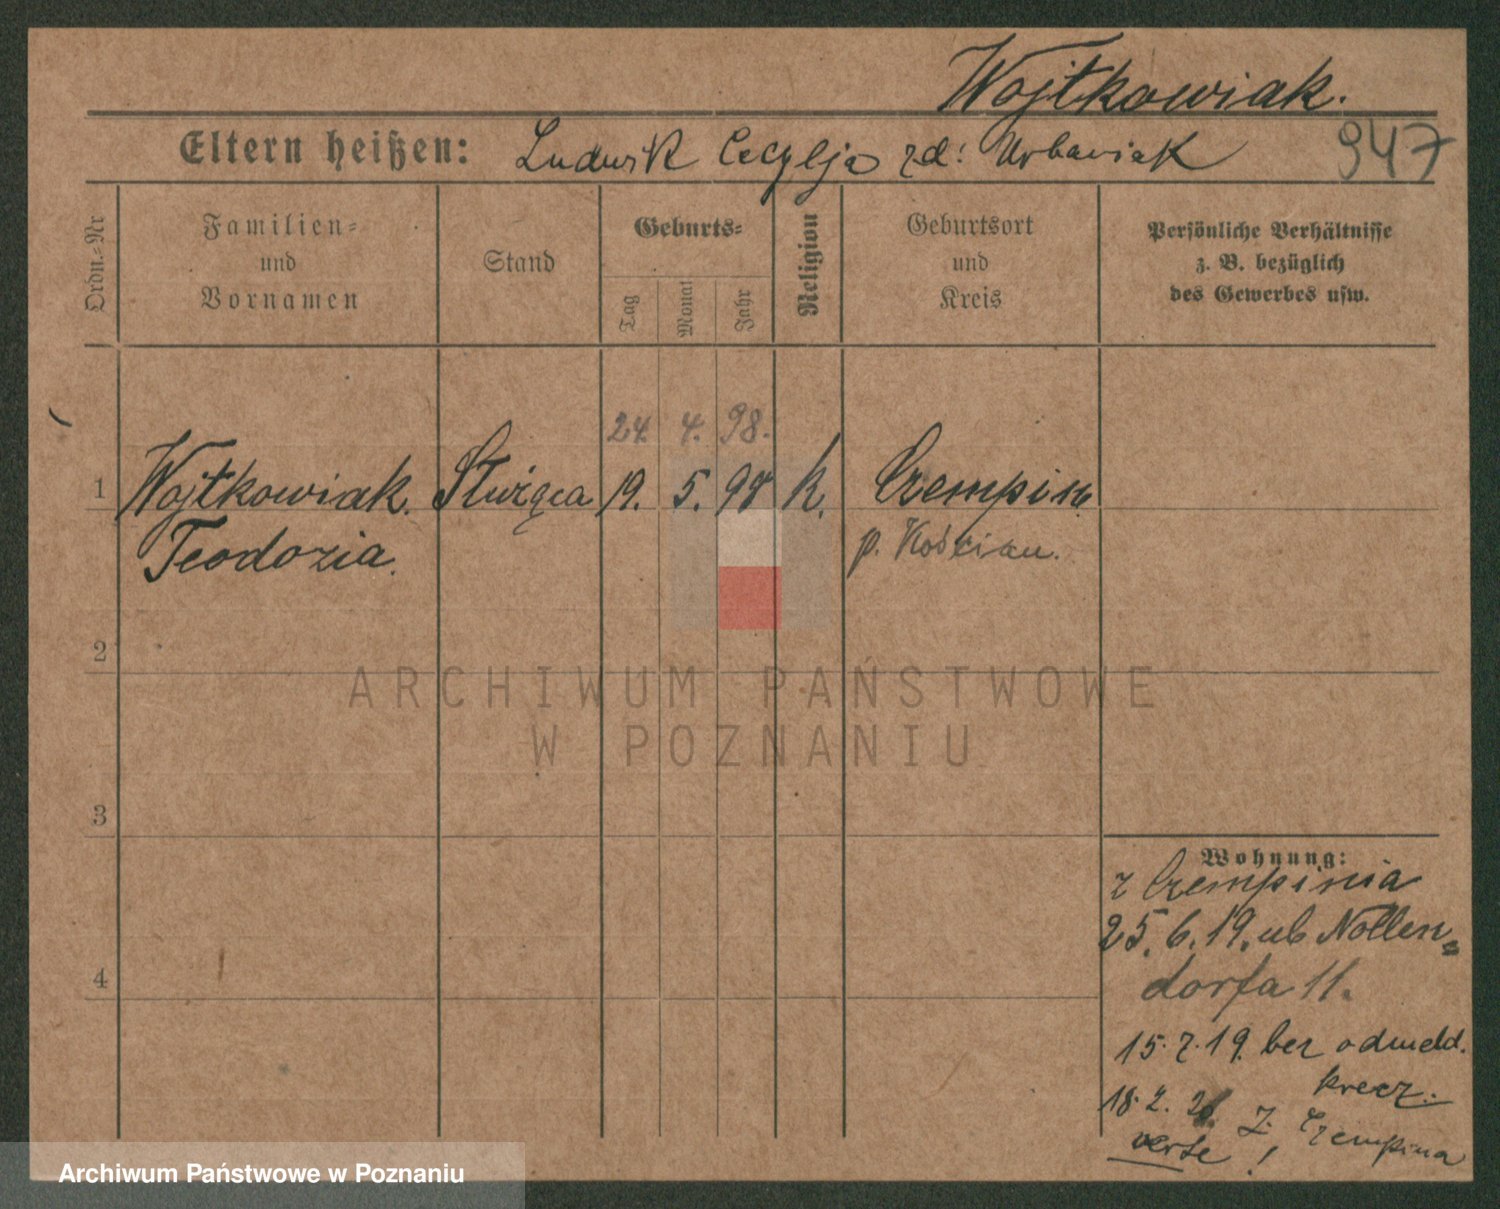 Wojtkowiak.
Eltern heißen: Ludwik Cecylja zd: Urbaniak 947
Ordn.-Nr
Familien-
und
Vornamen
Stand
Geburts-
Tag
Monat
Jahr
Religion
Geburtsort
und
Kreis
Persönliche Verhältnisse
z. B. bezüglich
des Gewerbes usw.
24. 4. 98.
1 Wojtkowiak. Służąca 19. 5. 98 k. Czempin
Teodozia. p. Kościan.
2
3
4
Wohnung:
z Czempinia
25. 6. 19. ub Nollen=
dorfa 11.
15. 7. 19. bez odmeld.
krecz.
18. 2. Z. Czempina
verte !
ARCHIWUM PAŃSTWOWE
W POZNANIU
Archiwum Państwowe w Poznaniu